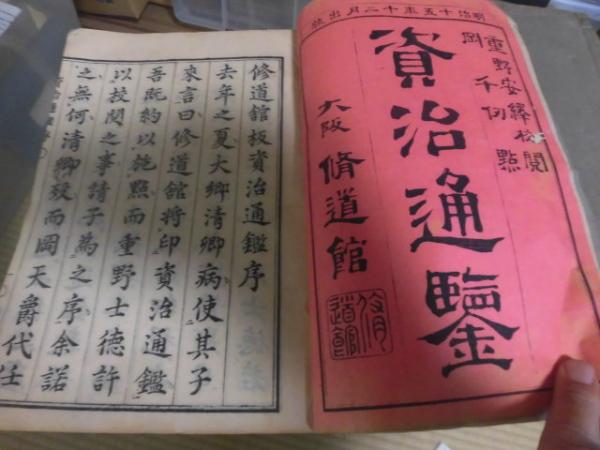 明治十五年十二月出版
重野安繹校閲
岡千仞點
資治通鑒
大阪脩道館
脩道館
修道館板資治通鑑序
去年之夏大鄉清卿病使其子
來言曰修道館將印資治通鑑
吾既約以施點而重野士德許
以校閱之事請子為之序余諾
之無何清卿歿而岡天爵代任